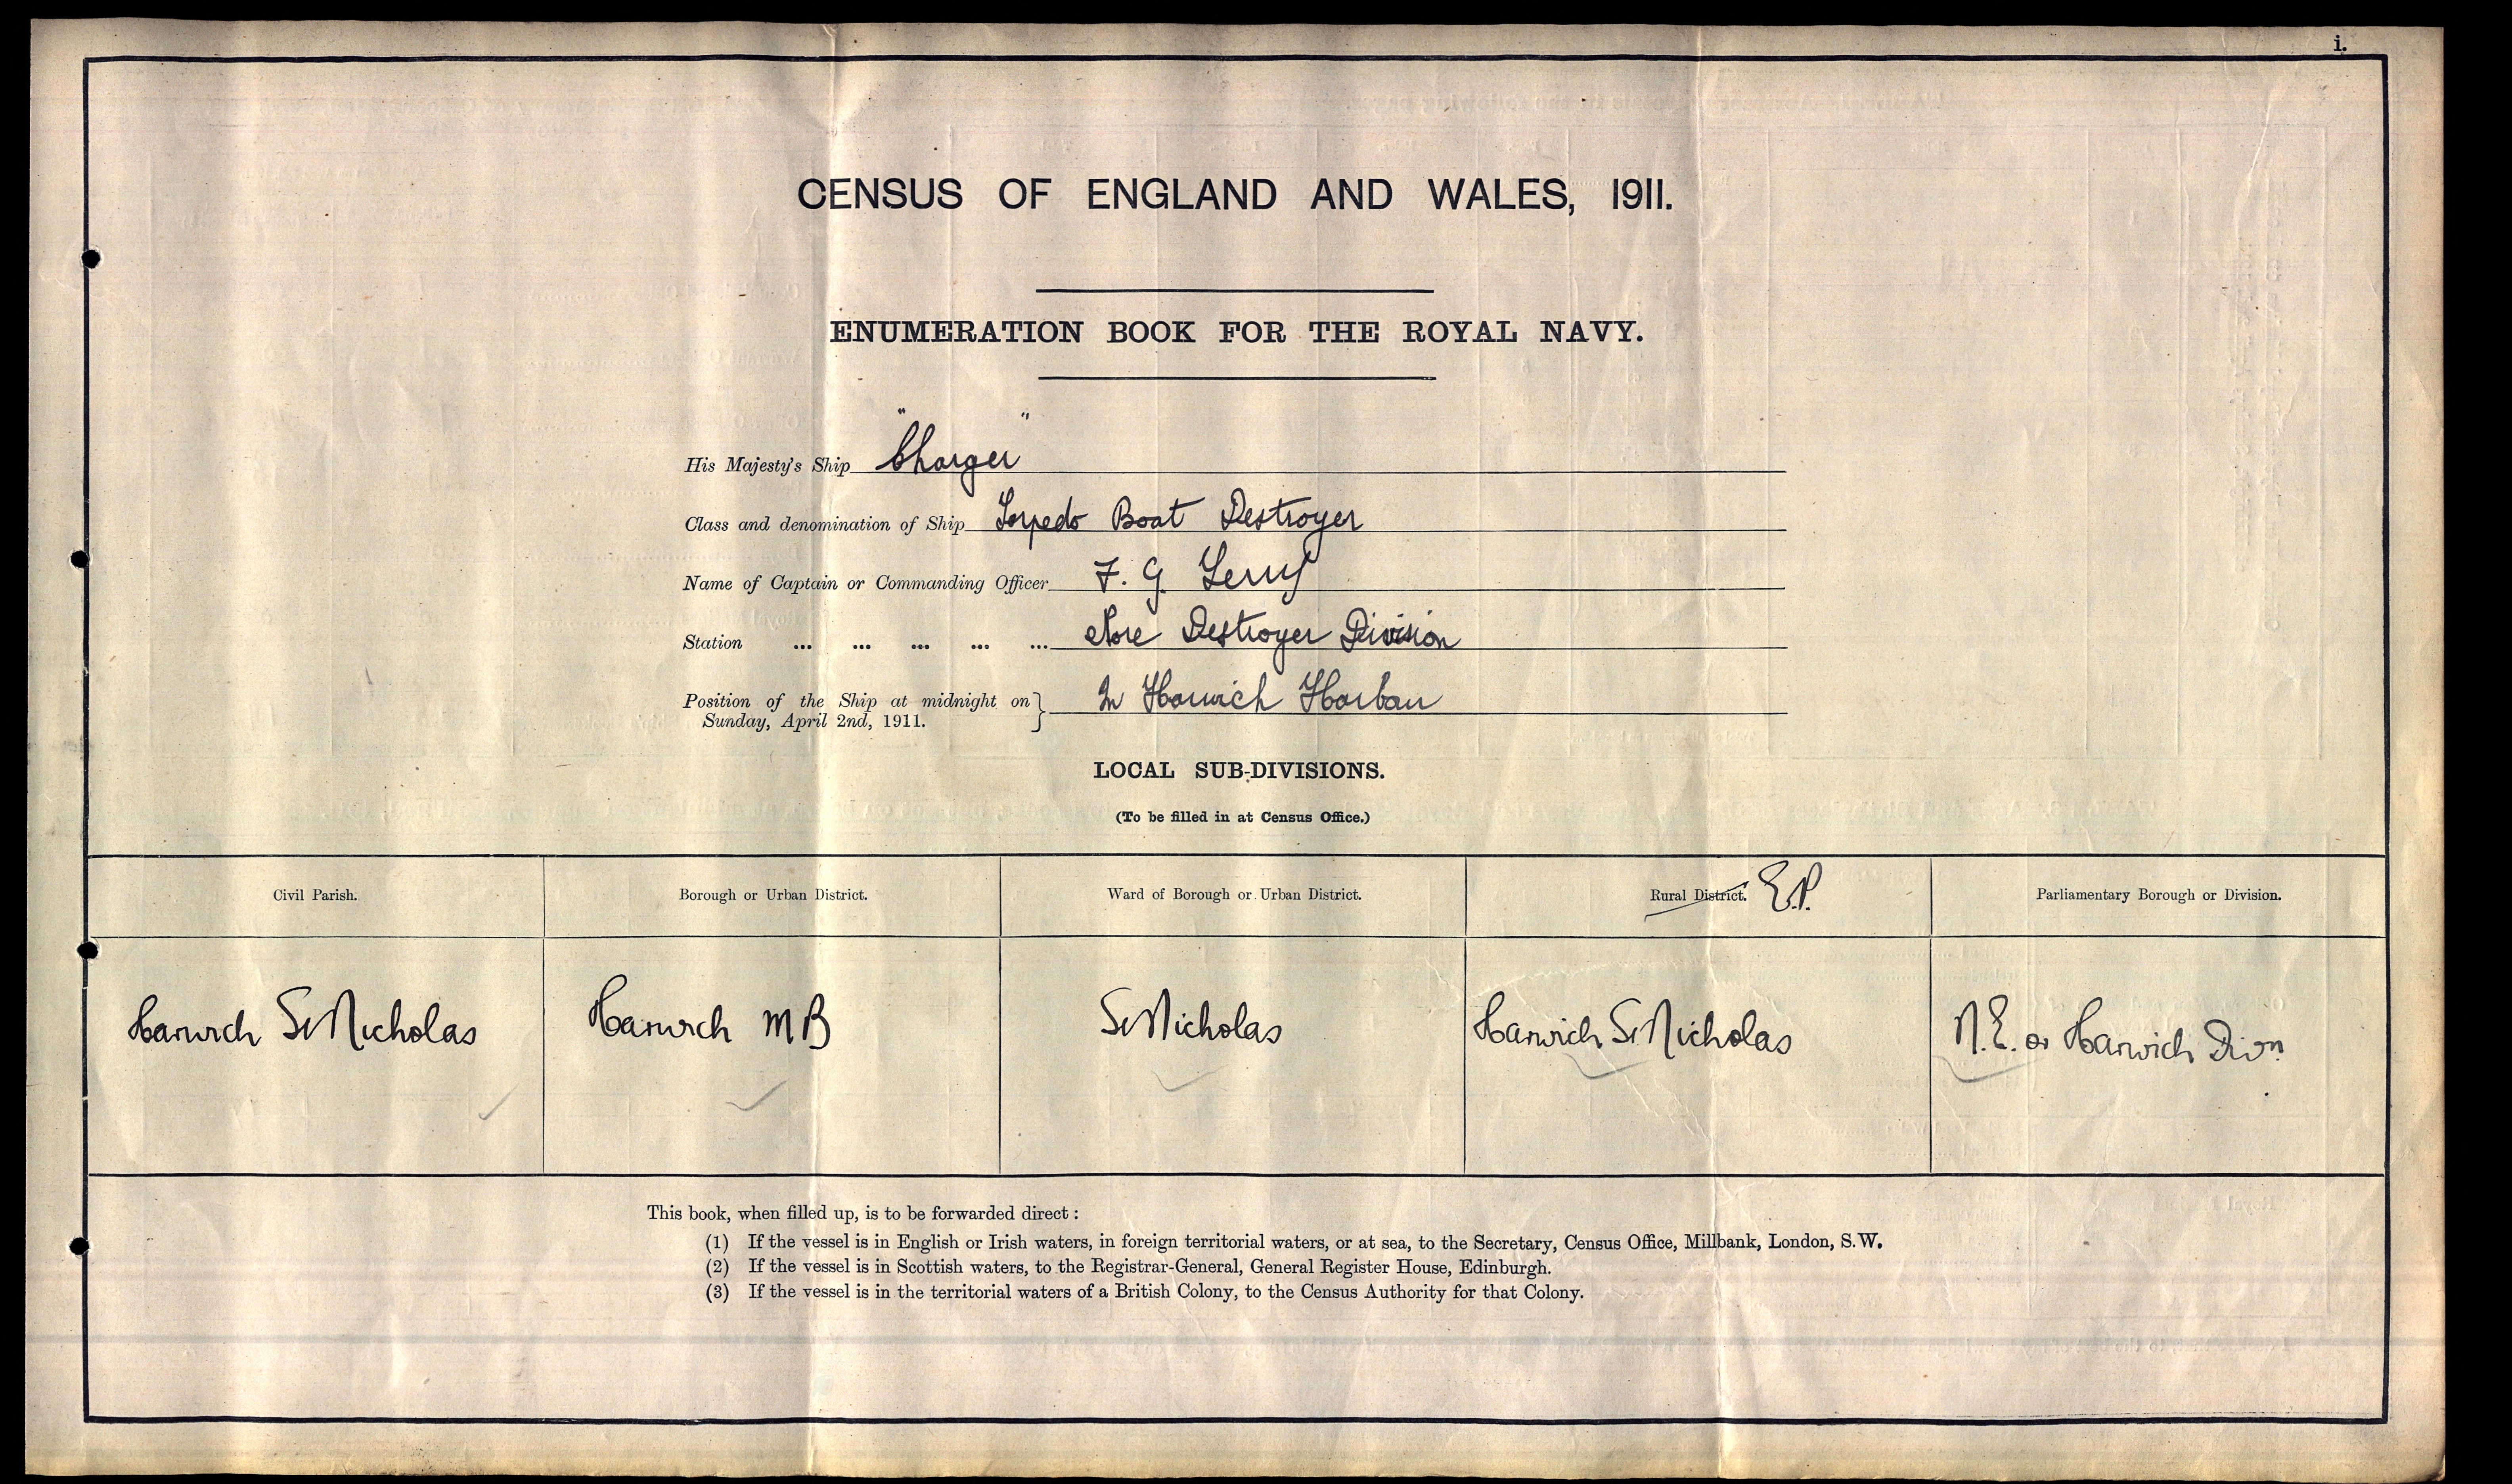 i.
CENSUS OF ENGLAND AND WALES, 1911.
ENUMERATION BOOK FOR THE ROYAL NAVY.
His Majesty's Ship "Charger"
Class and denomination of Ship Torpedo Boat Destroyer
Name of Captain or Commanding Officer F. G. Terry
Station ... ... ... ... ... Nore Destroyer Division
Position of the Ship at midnight on } In Harwich Harbour
Sunday, April 2nd, 1911.
LOCAL SUB-DIVISIONS.
(To be filled in at Census Office.)
Civil Parish. Borough or Urban District. Ward of Borough or Urban District. Rural District. E.P. Parliamentary Borough or Division.
Harwich St Nicholas Harwich MB St Nicholas Harwich St Nicholas N.E. or Harwich Divn
This book, when filled up, is to be forwarded direct :
(1) If the vessel is in English or Irish waters, in foreign territorial waters, or at sea, to the Secretary, Census Office, Millbank, London, S.W.
(2) If the vessel is in Scottish waters, to the Registrar-General, General Register House, Edinburgh.
(3) If the vessel is in the territorial waters of a British Colony, to the Census Authority for that Colony.